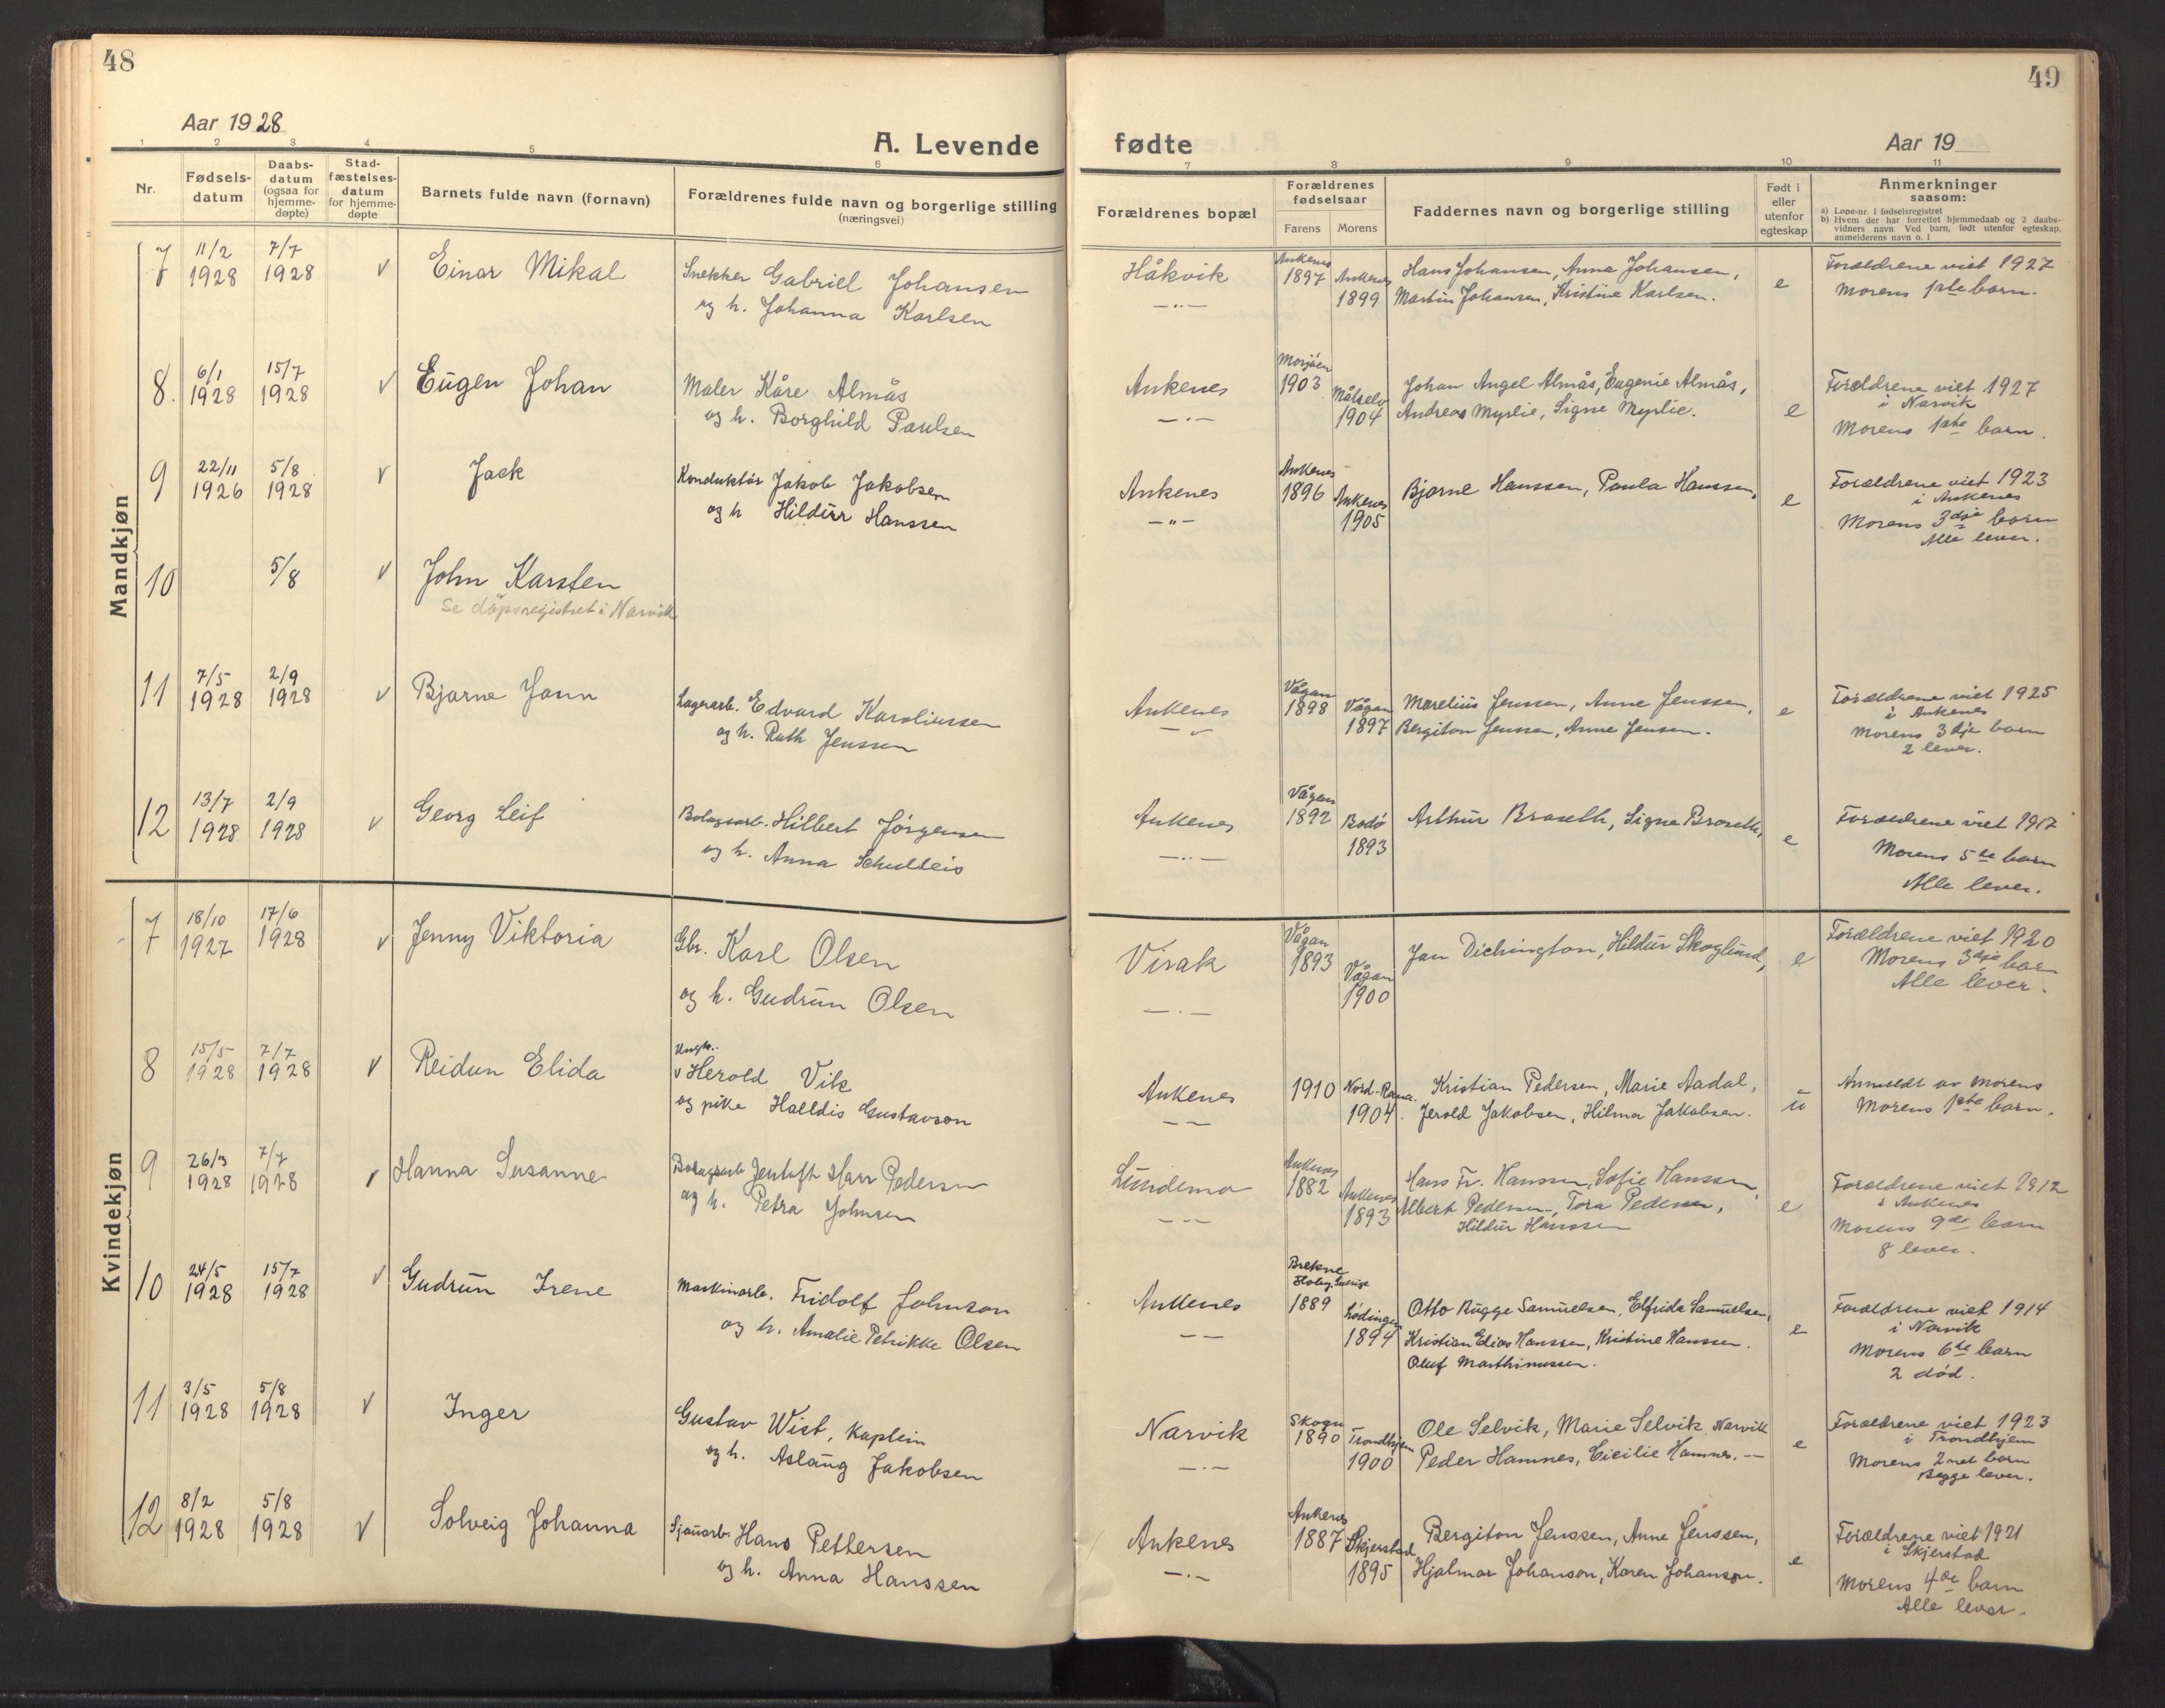 48
Aar 1928
A. Levende
1 2 3 4 5 6
Nr.
Fødsels-
datum
Daabs-
datum
(ogsaa for
hjemme-
døpte)
Stad-
fæstelses-
datum
for hjemme-
døpte
Barnets fulde navn (fornavn)
Forældrenes fulde navn og borgerlige stilling
(næringsvei)
Mandkjøn
7 11/2 1928 7/7 1928 √ Einar Mikal
Snekker Gabriel Johansen
og h. Johanna Karlsen
8. 6/1 1928 15/7 1928 √ Eugen Johan
Maler Kåre Almås
og h. Borghild Paulsen
9 22/11 1926 5/8 1928 √ Jack
Konduktør Jakob Jakobsen
og h Hildur Hanssen
10 5/8 √ John Karsten
Se dåpsregistret i Narvik
11 7/5 1928 2/9 1928 √ Bjarne Jann
Lagerarb. Edvard Karoliussen
og h. Ruth Jenssen
12 13/7 1928 2/9 1928 √ Georg Leif
Bolagsarb. Hilbert Jørgensen
og h. Anna Schulteis
Kvindekjøn
7 18/10 1927 17/6 1928 √ Jenny Viktoria
Gbr. Karl Olsen
og h. Gudrun Olsen
8 15/5 1928 7/7 1928 √ Reidun Elida
Ungk.
Herold Vik
og pike Halldis Gustavson
9 26/3 1928 7/7 1928 √ Hanna Susanne
Bolagsarb Jentoft Harr Pedersen
og h. Petra Johnsen
10 24/5 1928 15/7 1928 √ Gudrun Irene
Maskinarb. Fridolf Johnson
og h. Amalie Petrikke Olsen
11 3/5 1928 5/8 1928 √ Inger
Gustav Wist, Kaplein
og h. Aslaug Jakobsen
12 8/2 1928 5/8 1928 √ Solveig Johanna
Sjauarb. Hans Pettersen
og h. Anna Hanssen
49
fødte
Aar 19
7 8 9 10 11
Forældrenes bopæl
Forældrenes
fødselsaar
Farens Morens
Faddernes navn og borgerlige stilling
Født i
eller
utenfor
egteskap
Anmerkninger
saasom:
a) Løpe-nr. i fødselsregistret
b) Hvem der har forrettet hjemmedaab og 2 daabs-
vidners navn. Ved barn, født utenfor egteskap,
anmelderens navn o. l
Håkvik
Ankenes 1897
Ankenes 1899
Hans Johansen, Anna Johansen,
Martin Johansen, Kristine Karlsen.
e
Forældrene viet 1927
Morens 1ste barn.
Ankenes
Mosjøen 1903
Målselv 1904
Johan Angel Almås, Eugenie Almås,
Andreas Myrlie, Signe Myrlie.
e
Forældrene viet 1927
i Narvik
Morens 1ste barn.
Ankenes
Ankenes 1896
Ankenes 1905
Bjarne Hanssen, Paula Hanssen,
e
Forældrene viet 1923
i Ankenes
Morens 3dje barn
Alle lever.
Ankenes
Vågan 1898
Vågan 1897
Marelius Jenssen, Anne Jenssen,
Bergiton Jenssen, Anne Jensen.
e
Forældrene viet 1925
i Ankenes
Morens 3dje barn
2 lever.
Ankenes
Vågan 1892
Bodø 1893
Arthur Braseth, Signe Braseth,
e
Forældrene viet 1917
Morens 5te barn
Alle lever.
Virak
Vågan 1893
Vågan 1900
Jan Dichington, Hildur Skoglund,
e
Forældrene viet 1920
Morens 3dje barn
Alle lever.
Ankenes
1910
Nord-Rana. 1904.
Kristian Pedersen, Marie Aadal,
Jerold Jakobsen, Hilma Jakobsen.
u
Anmeldt av Morens
Morens 1ste barn.
Lundemo
Ankenes 1882
Ankenes 1893
Hans Fr. Hanssen, Sofie Hanssen,
Albert Pedersen, Tora Pedersen,
Hildur Hanssen
e
Forældrene viet 1912
i Ankenes
Morens 9de barn
8 lever.
Ankenes
Brekne
Hoby, Sverige
1889
Lødingen 1894
Otto Rugge Samuelsen, Elfrida Samuelsen,
Kristian Edias Hanssen, Kristine Hanssen.
Oluf Marthinussen.
e
Forældrene viet 1914
i Narvik
Morens 6te barn
2 død.
Narvik
Skogn 1890
Trondhjem 1900
Ole Selvik, Marie Selvik, Narvik
Peder Hamnes, Cicilie Hamnes. —
e
Forældrene viet 1923
i Trondhjem
Morens 2net barn
Begge lever.
Ankenes
Ankenes 1887
Skjerstad 1895
Bergiton Jenssen, Anne Jenssen,
Hjalmar Johanson, Karen Johanson.
e
Forældrene viet 1921
i Skjerstad
Morens 4de barn
Alle lever.